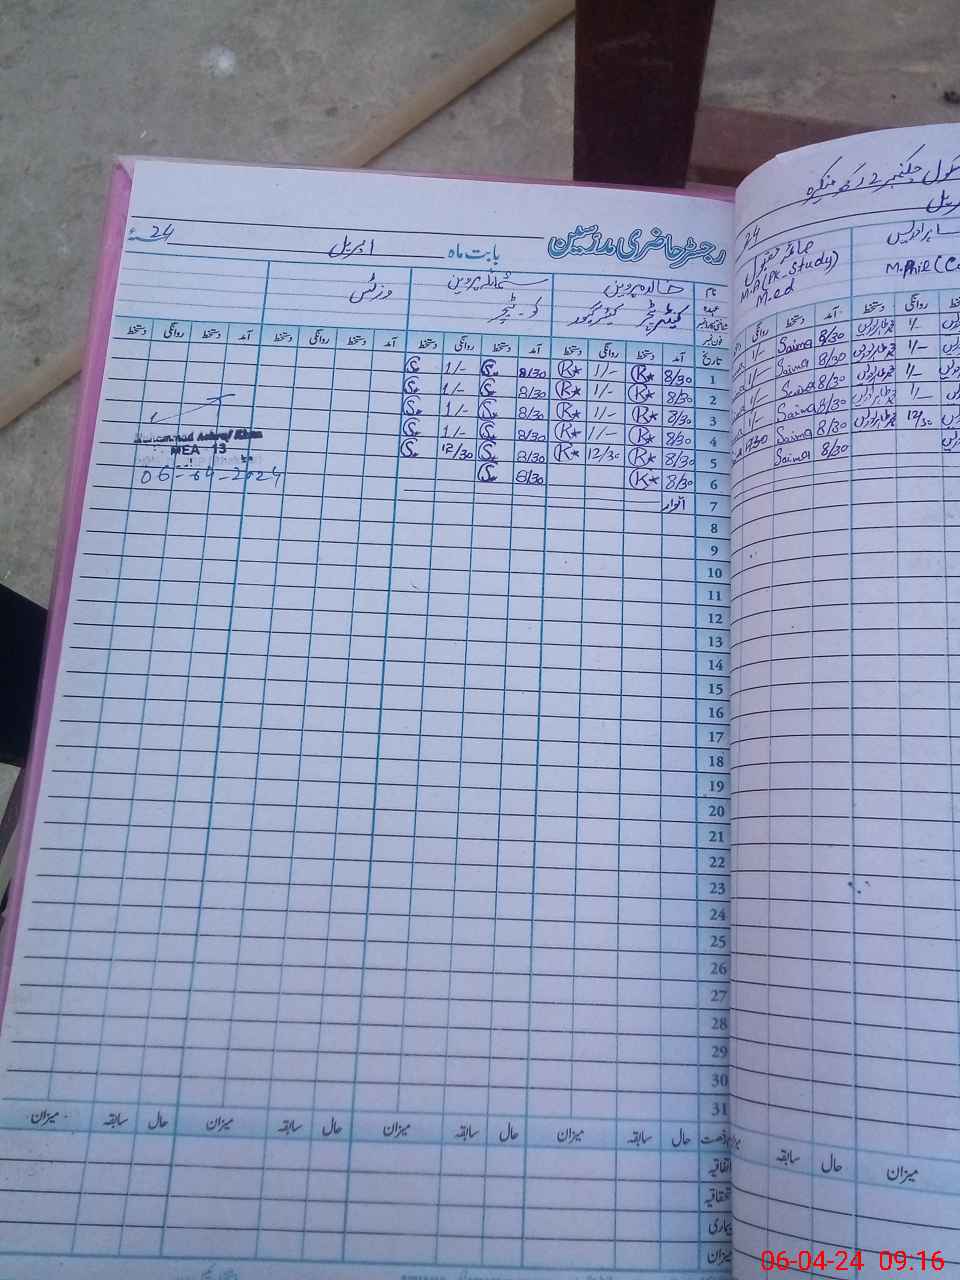 رجسٹر حاضری مدرسین بابت ماہ اپریل 24
نام خالدہ پروین شمائلہ پروین وزٹس
عہدہ کیئر گیور کو۔ٹیچر
تاریخ آمد دستخط روانگی دستخط آمد دستخط روانگی دستخط آمد دستخط روانگی دستخط آمد دستخط روانگی دستخط
1 8/30 K* 1/- K* 8/30 S. 1/- S.
2 8/30 K* 1/- K* 8/30 S. 1/- S.
3 8/30 K* 1/- K* 8/30 S. 1/- S.
4 8/30 K* 1/- K* 8/30 S. 1/- S.
5 8/30 K* 12/30 K* 8/30 S. 12/30 S.
6 8/30 K* 8/30 S.
7 اتوار
8
9
10
11
12
13
14
15
16
17
18
19
20
21
22
23
24
25
26
27
28
29
30
31
Muhammad Ashraf Khan
MEA 13
06-04-2024
حال سابقہ میزان حال سابقہ میزان حال سابقہ میزان حال سابقہ میزان
اتفاقیہ
استحقاقیہ
بیماری
میزان
24
M.A (Pk. Study)
M.ed
M.Phil
روانگی دستخط آمد دستخط روانگی
1/- Saima 8/30 1/-
1/- Saima 8/30 1/-
1/- Saima 8/30 1/-
1/- Saima 8/30 1/-
12/30 Saima 8/30 12/30
Saima 8/30
سابقہ حال میزان
06-04-24 09:16